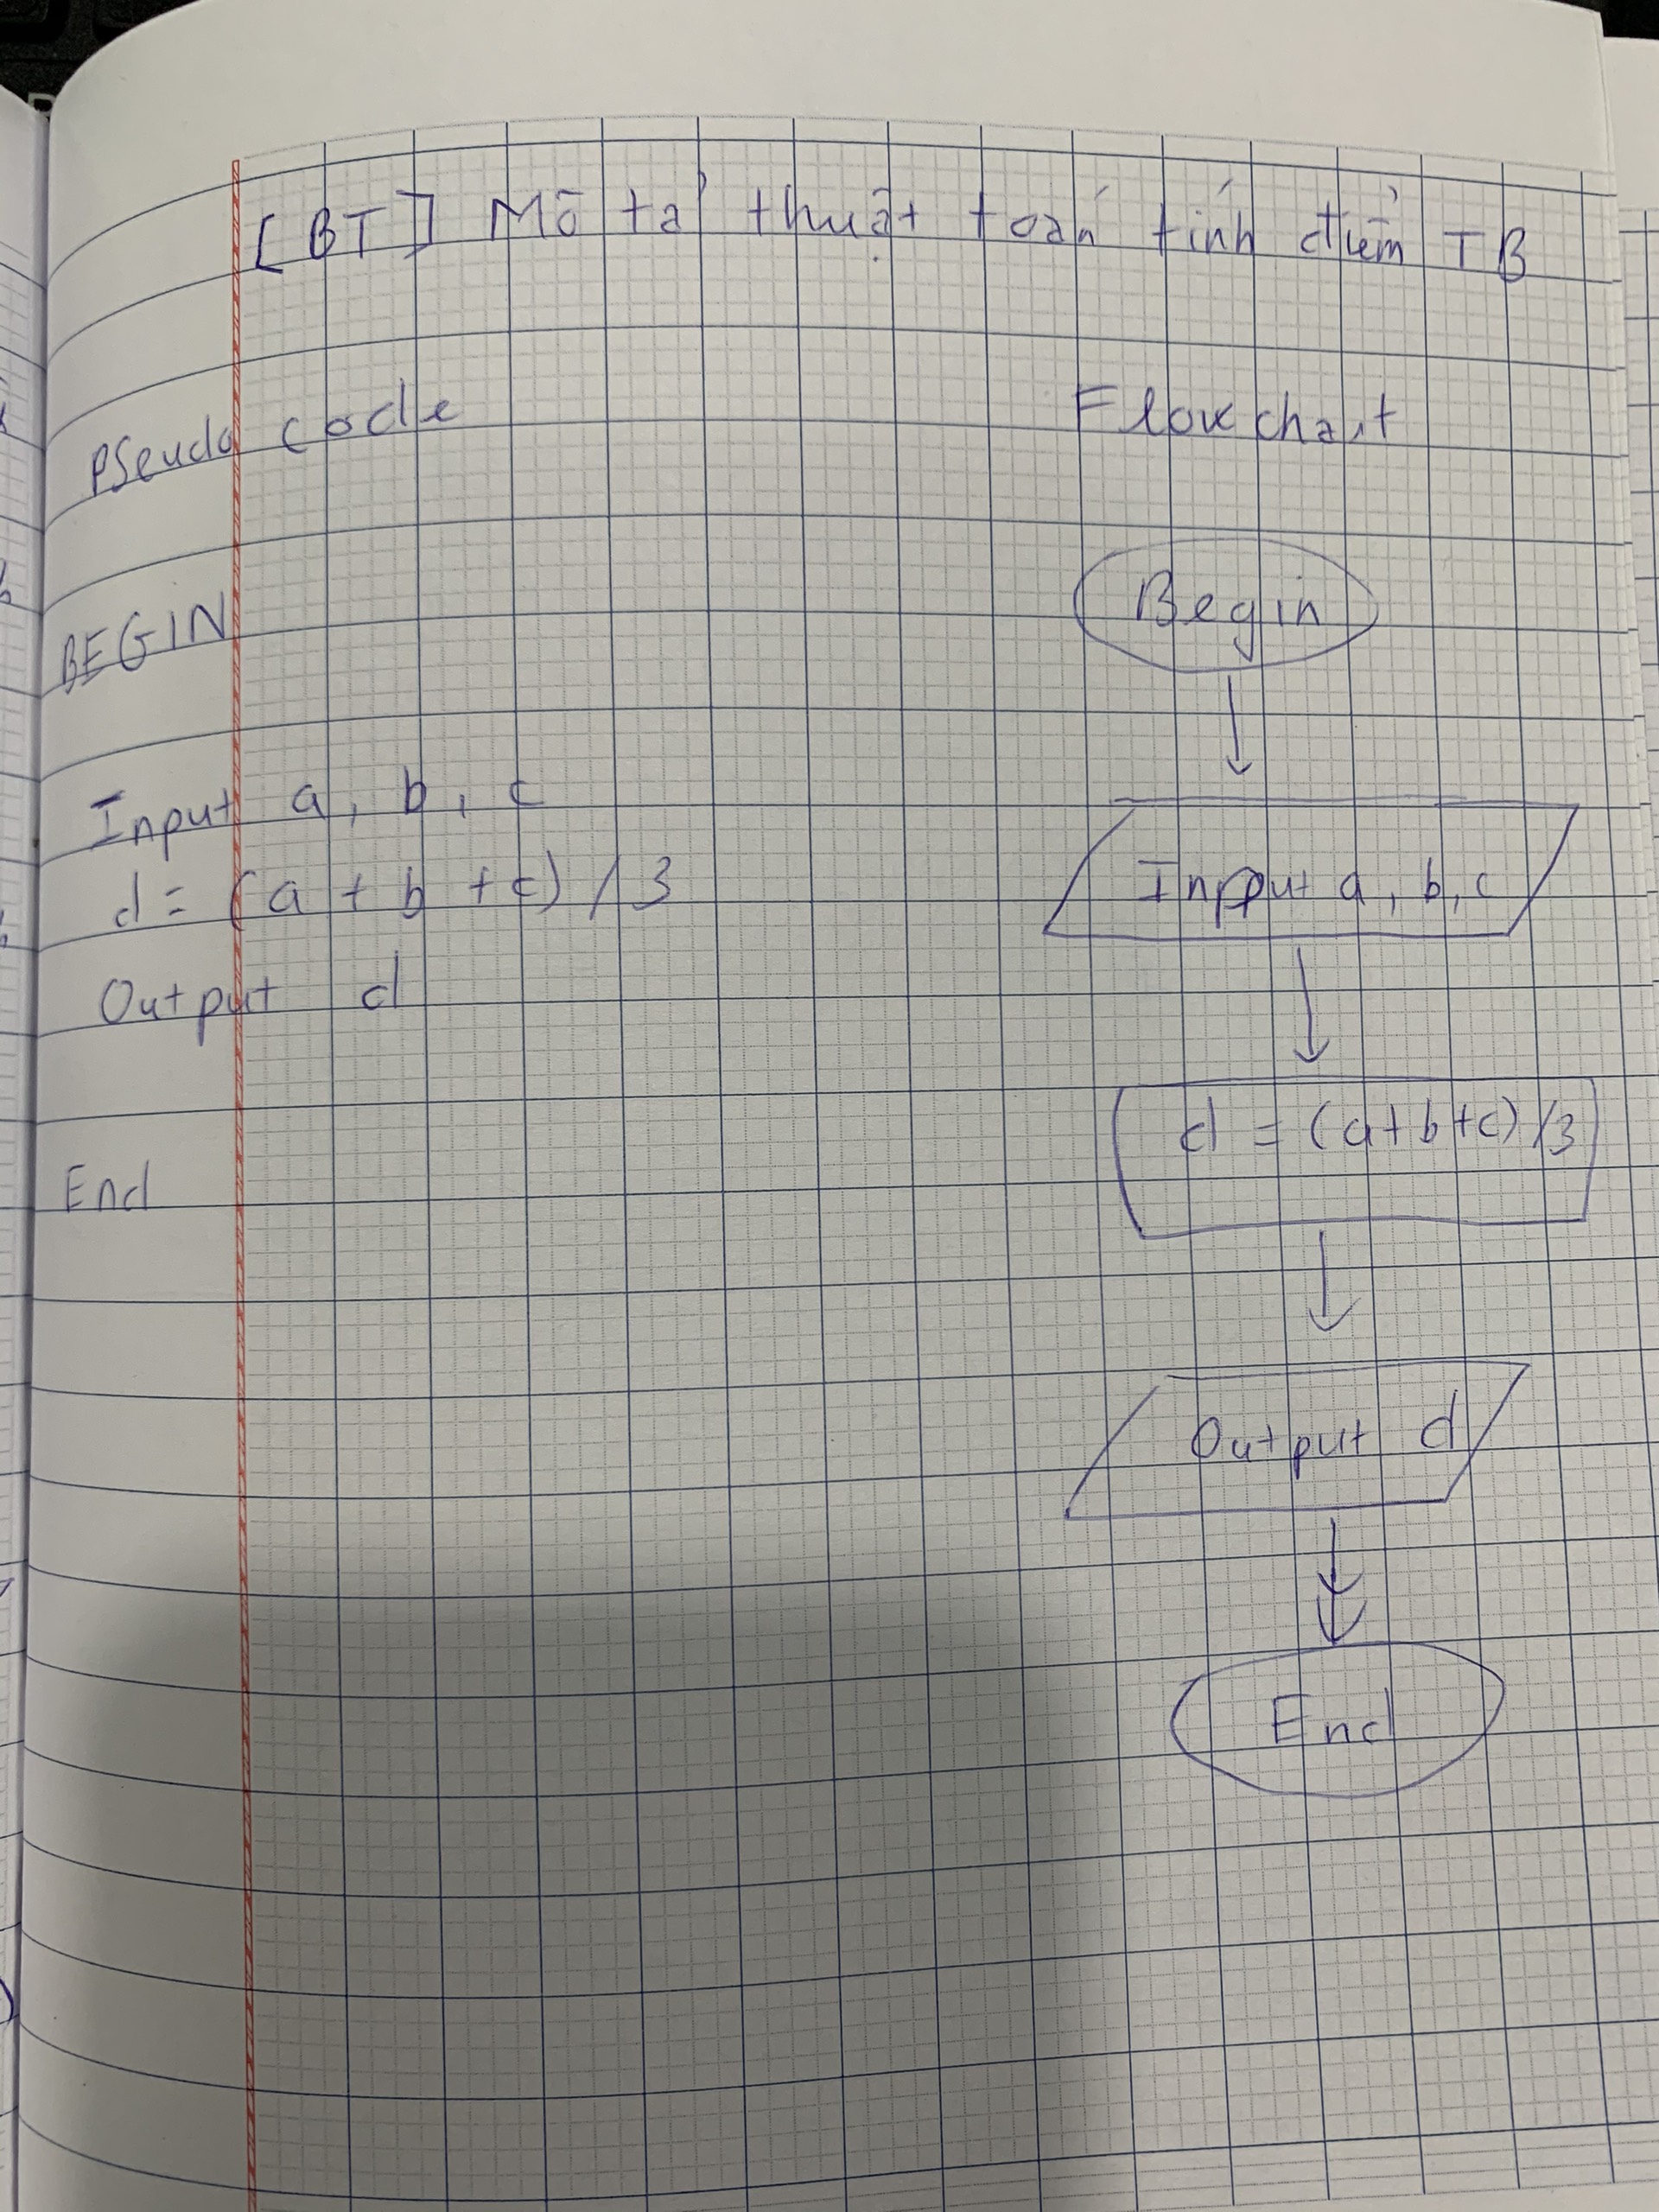 [BT] Mô tả thuật toán tính điểm TB
Pseudo code
BEGIN
Input a, b, c
d = (a + b + c) / 3
Output d
End
Flowchart
Begin
Input a, b, c
d = (a+b+c) /3
Output d
End